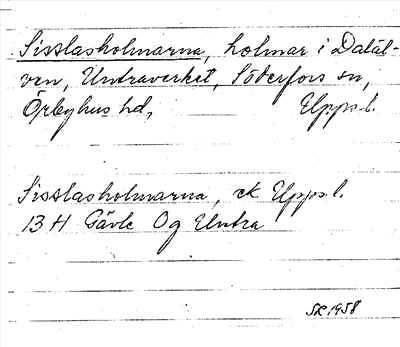 Sisslasholmarna, holmar i Daläl-
ven, Untraverket, Söderfors sn,
Örbyhus hd, Upps.l.
Sisslasholmarna, ek Upps.l.
13 H Gävle Og Untra
SR 1958